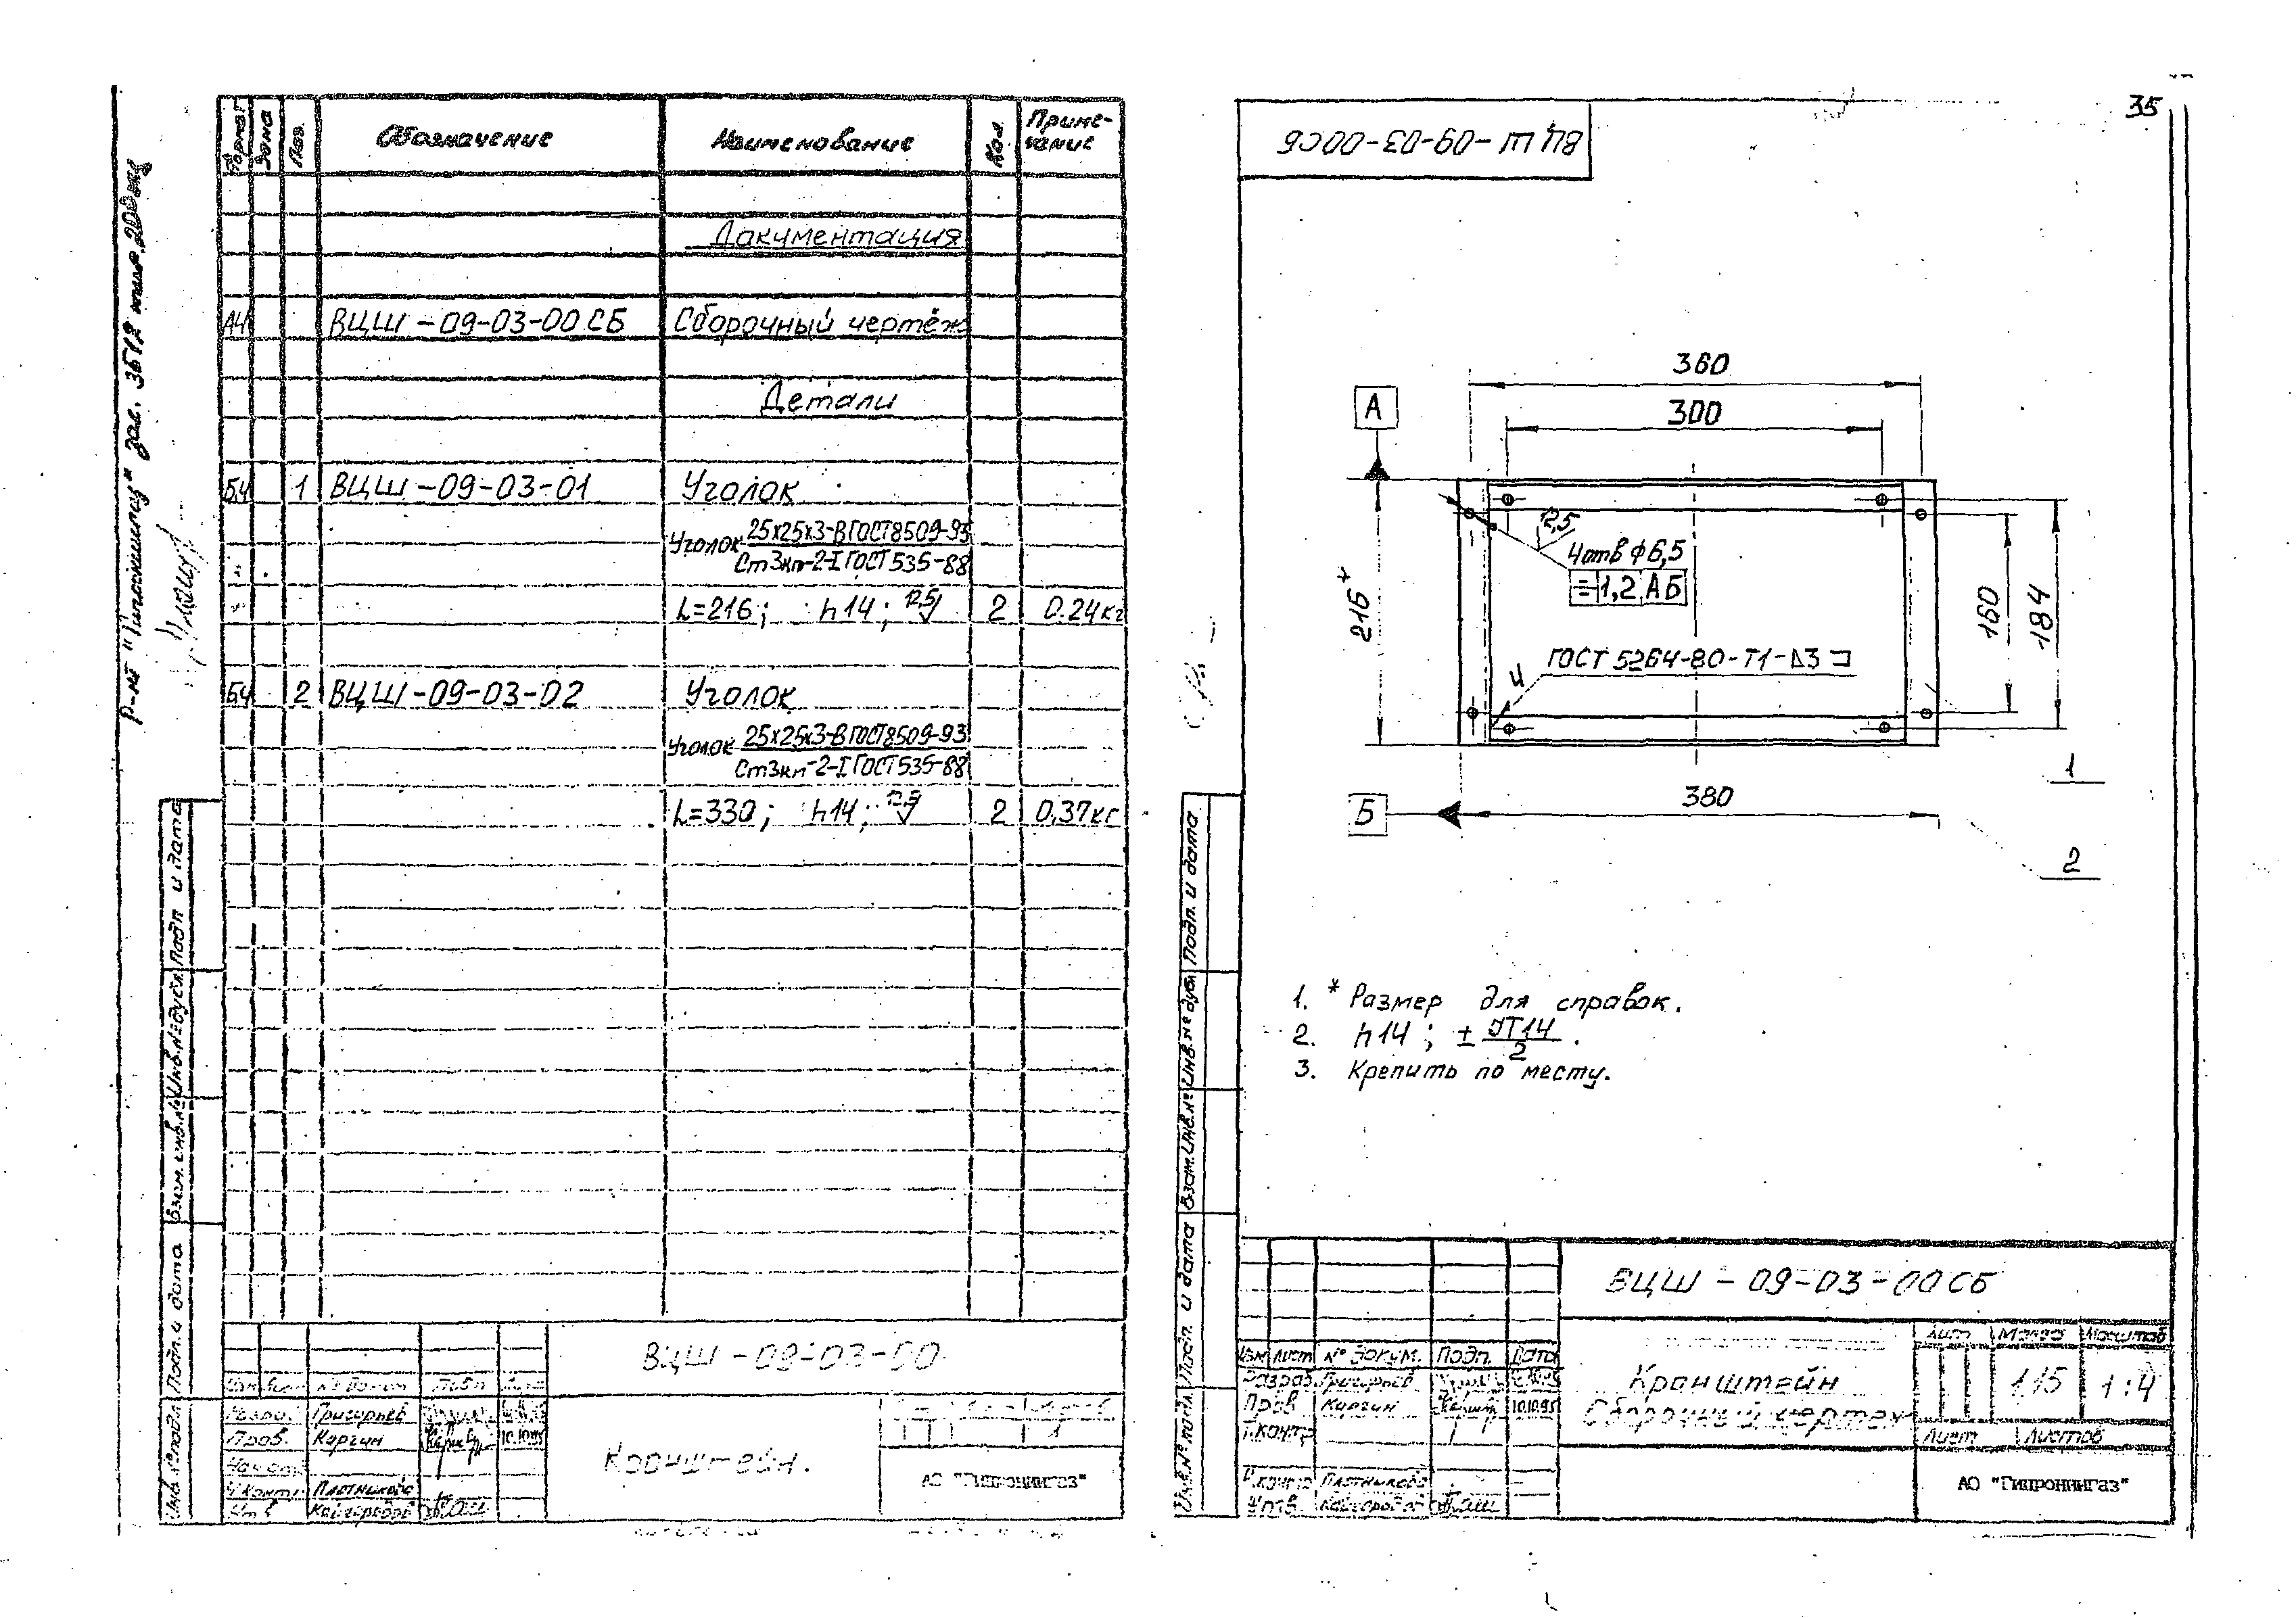 Формат Зона Поз. Обозначение Наименование Кол. Приме-
чание
Документация
А4 ВЦШ-09-03-00СБ Сборочный чертёж
Детали
БЧ 1 ВЦШ-09-03-01 Уголок
Уголок 25х25х3-В ГОСТ 8509-93
Ст3кп-2-I ГОСТ 535-88
L=216; h14; 12,5 2 0.24кг
БЧ 2 ВЦШ-09-03-02 Уголок
Уголок 25х25х3-В ГОСТ 8509-93
Ст3кп-2-I ГОСТ 535-88
L=330; h14; 12,5 2 0,37кг
Подп. и дата
Инв.№дубл.
Взам.инв.№
Подп. и дата
Инв.№подл.
ВЦШ-09-03-00
Разраб. Григорьев
Пров. Каргин 10.10.95
Н.контр. Плотникова
Утв
1
Кронштейн.
АО "Гипрониигаз"
35
ВЦШ-09-03-00СБ
360
300
А
12,5
4отв ϕ6,5
= 1,2 АБ
216*
160
184
ГОСТ 5264-80-Т1-⊿3 ⊐
4
1
Б
380
2
1. * Размер для справок.
2. h14; ± JT14/2.
3. Крепить по месту.
Подп. и дата
Инв.№ дубл.
Взам.инв.№
Подп. и дата
Инв.№ подл.
ВЦШ-09-03-00СБ
Изм Лист № докум. Подп. Дата
Разраб. Григорьев
Пров Каргин 10.10.95
Т.контр
Н.контр Плотникова
Утв.
Кронштейн
Сборочный чертеж
Лит Масса Масштаб
1,15 1:4
Лист Листов
АО "Гипрониигаз"